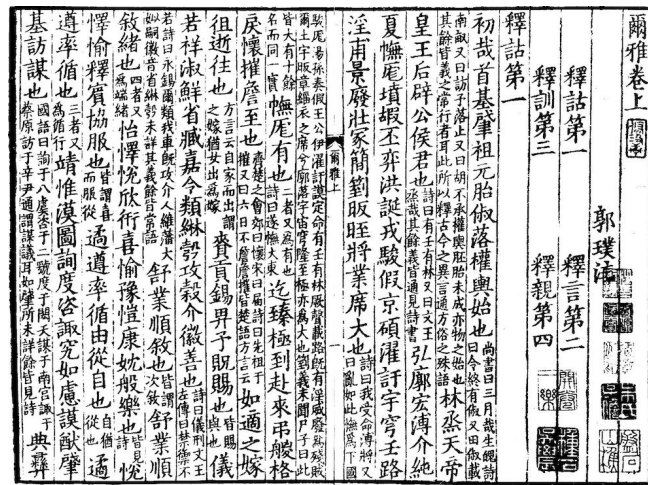 爾雅卷上
郭璞注
釋詁第一 釋言第二
釋訓第三 釋親第四
釋詁第一
初哉首基肇祖元胎俶落權輿始也 尚書曰三月哉生魄詩曰令終有俶又曰俶載
南畝又曰訪予落止又曰胡不承權輿胚胎未成亦物之始也其餘皆義之常行者耳此所以釋古今之異言通方俗之殊語 林烝天帝
皇王后辟公侯君也 詩曰有壬有林又曰文王烝哉其餘義皆通見詩書 弘廓宏溥介純
夏幠厖墳嘏丕弈洪誕戎駿假京碩濯訏宇穹壬路
淫甫景廢壯冢簡箌昄晊將業席大也 詩曰我受命溥將又曰亂如此幠為下國
爾雅上
駿厖湯孫奏假王公伊濯訏謨定命有壬有林厥聲載路既有淫威廢為殘賊爾土宇昄章緇衣之席兮廓落宇宙穹隆至極亦為大也箌義未聞尸子曰此
皆大有十餘名而同一實 幠厖有也 二者又為有也詩曰遂幠大東 迄臻極到赴來弔艐格
戾懷摧詹至也 齊楚之會郊曰懷宋曰屆詩曰先祖于摧又曰六日不詹詹摧皆楚語方言云 如適之嫁
徂逝往也 方言云自家而出謂之嫁猶女出為嫁 賚貢錫畀予貺賜也 皆賜與也 儀
若祥淑鮮省臧嘉令類綝彀攻穀介徽善也 詩曰儀刑文王左傳曰禁禦不
若詩曰永錫爾類我車既攻介人維藩大姒嗣徽音省綝彀未詳其義餘皆常語 舒業順敘也 皆謂次敘 舒業順
敘緒也 四者又為端緒 怡懌悅欣衎喜愉豫愷康妉般樂也 皆見詩 悅
懌愉釋賓協服也 皆謂喜而服從 遹遵率循由從自也 自猶從也 遹
遵率循也 三者又為循行 靖惟漠圖詢度咨諏究如慮謨猷肇
基訪謀也 國語曰詢于八虞咨于二虢度于閎夭謀于南宮諏于蔡原訪于辛尹通謂謀議耳如肇所未詳餘皆見詩 典彝